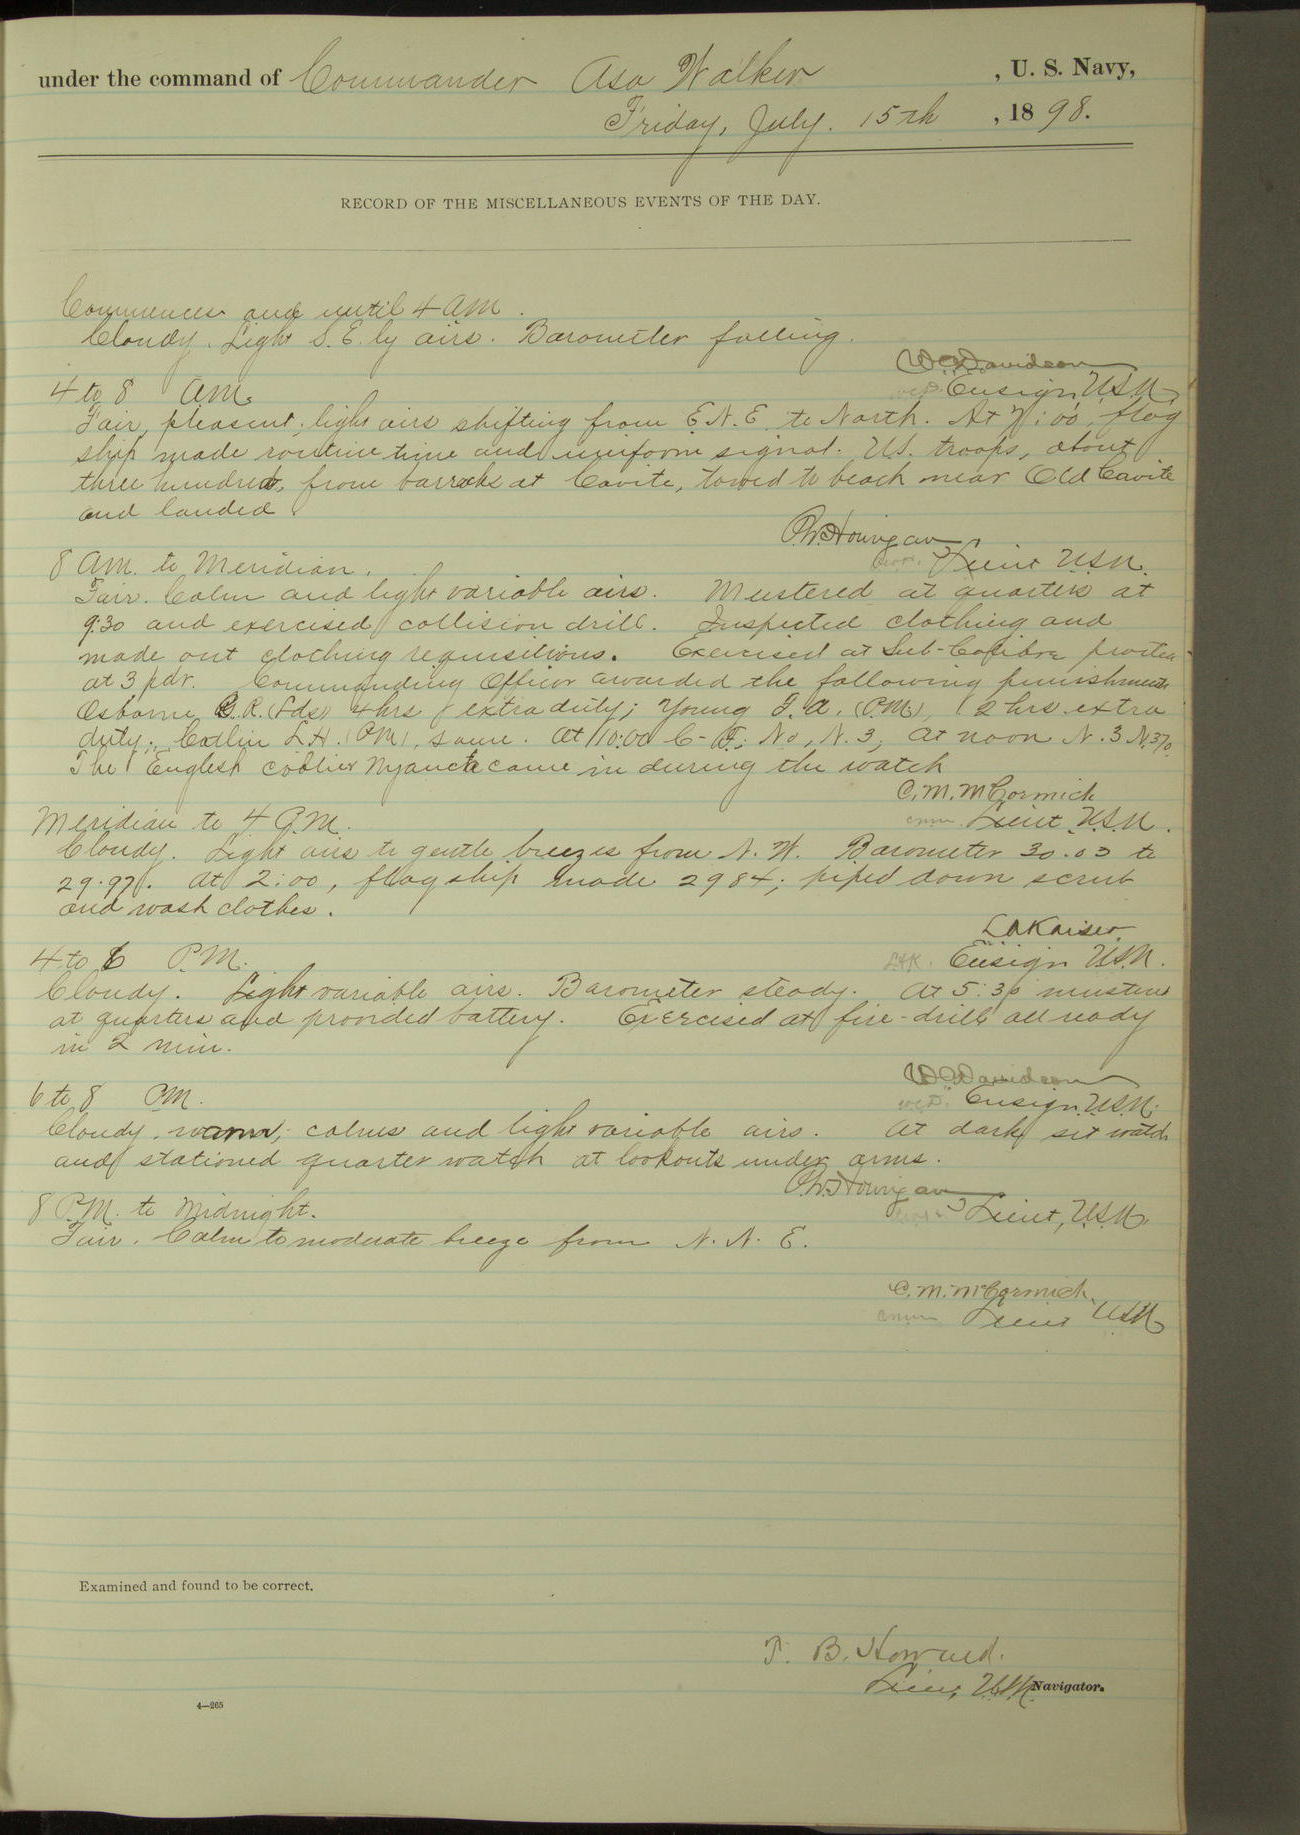 under the command of Commander Asa Walker , U. S. Navy,
Friday, July. 15th , 1898.
RECORD OF THE MISCELLANEOUS EVENTS OF THE DAY.
Commences and until 4 AM.
Cloudy. Light S.E.ly airs. Barometer falling.
W C Davidson
4 to 8 AM. Ensign U.S.N.
Fair, pleasant, light airs shifting from E.N.E. to North. At 7:00, flag
ship made routine time and uniform signal. U.S. troops, about
three hundred, from barracks at Cavite, towed to beach near Old Cavite
and landed.
P.W. Hourigan
8 AM. to Meridian. Lieut USN.
Fair. Calm and light variable airs. Mustered at quarters at
9:30 and exercised collision drill. Inspected clothing and
made out clothing requisitions. Exercised at Sub-Calibre practice
at 3 pdr. Commanding Officer awarded the following punishments
Osborne R. (Lds) 4 hrs extra duty; Young F.A. (P.M.), 12 hrs. extra
duty; L.H. (P.M.), same. At 10:00 C- No, N. 3; At noon N. 3 N. 370
The English collier came in during the watch
C. M. McCormick
Meridian to 4 P.M. cmm. Lieut U.S.N.
Cloudy. Light airs to gentle breezes from N. W. Barometer 30.03 to
29.97. At 2:00, flagship made 2984; piped down scrub
and wash clothes.
L A Kaiser
4 to 6 P.M. LAK. Ensign U.S.N.
Cloudy. Light variable airs. Barometer steady. At 5:30 mustered
at quarters and provided battery. Exercised at fire-drill all ready
in 2 min.
W C Davidson
6 to 8 PM. WCD. Ensign U.S.N.
Cloudy, warm; calms and light variable airs. At dark set watch
and stationed quarter watch at lookouts under arms.
P.W. Hourigan
8 P.M. to Midnight. Lieut, U.S.N.
Fair. Calm to moderate breeze from N. N. E.
C. M. McCormick
cmm Lieut USN
Examined and found to be correct.
T. B. Howard.
Lieut, U.S.N. Navigator.
4—265